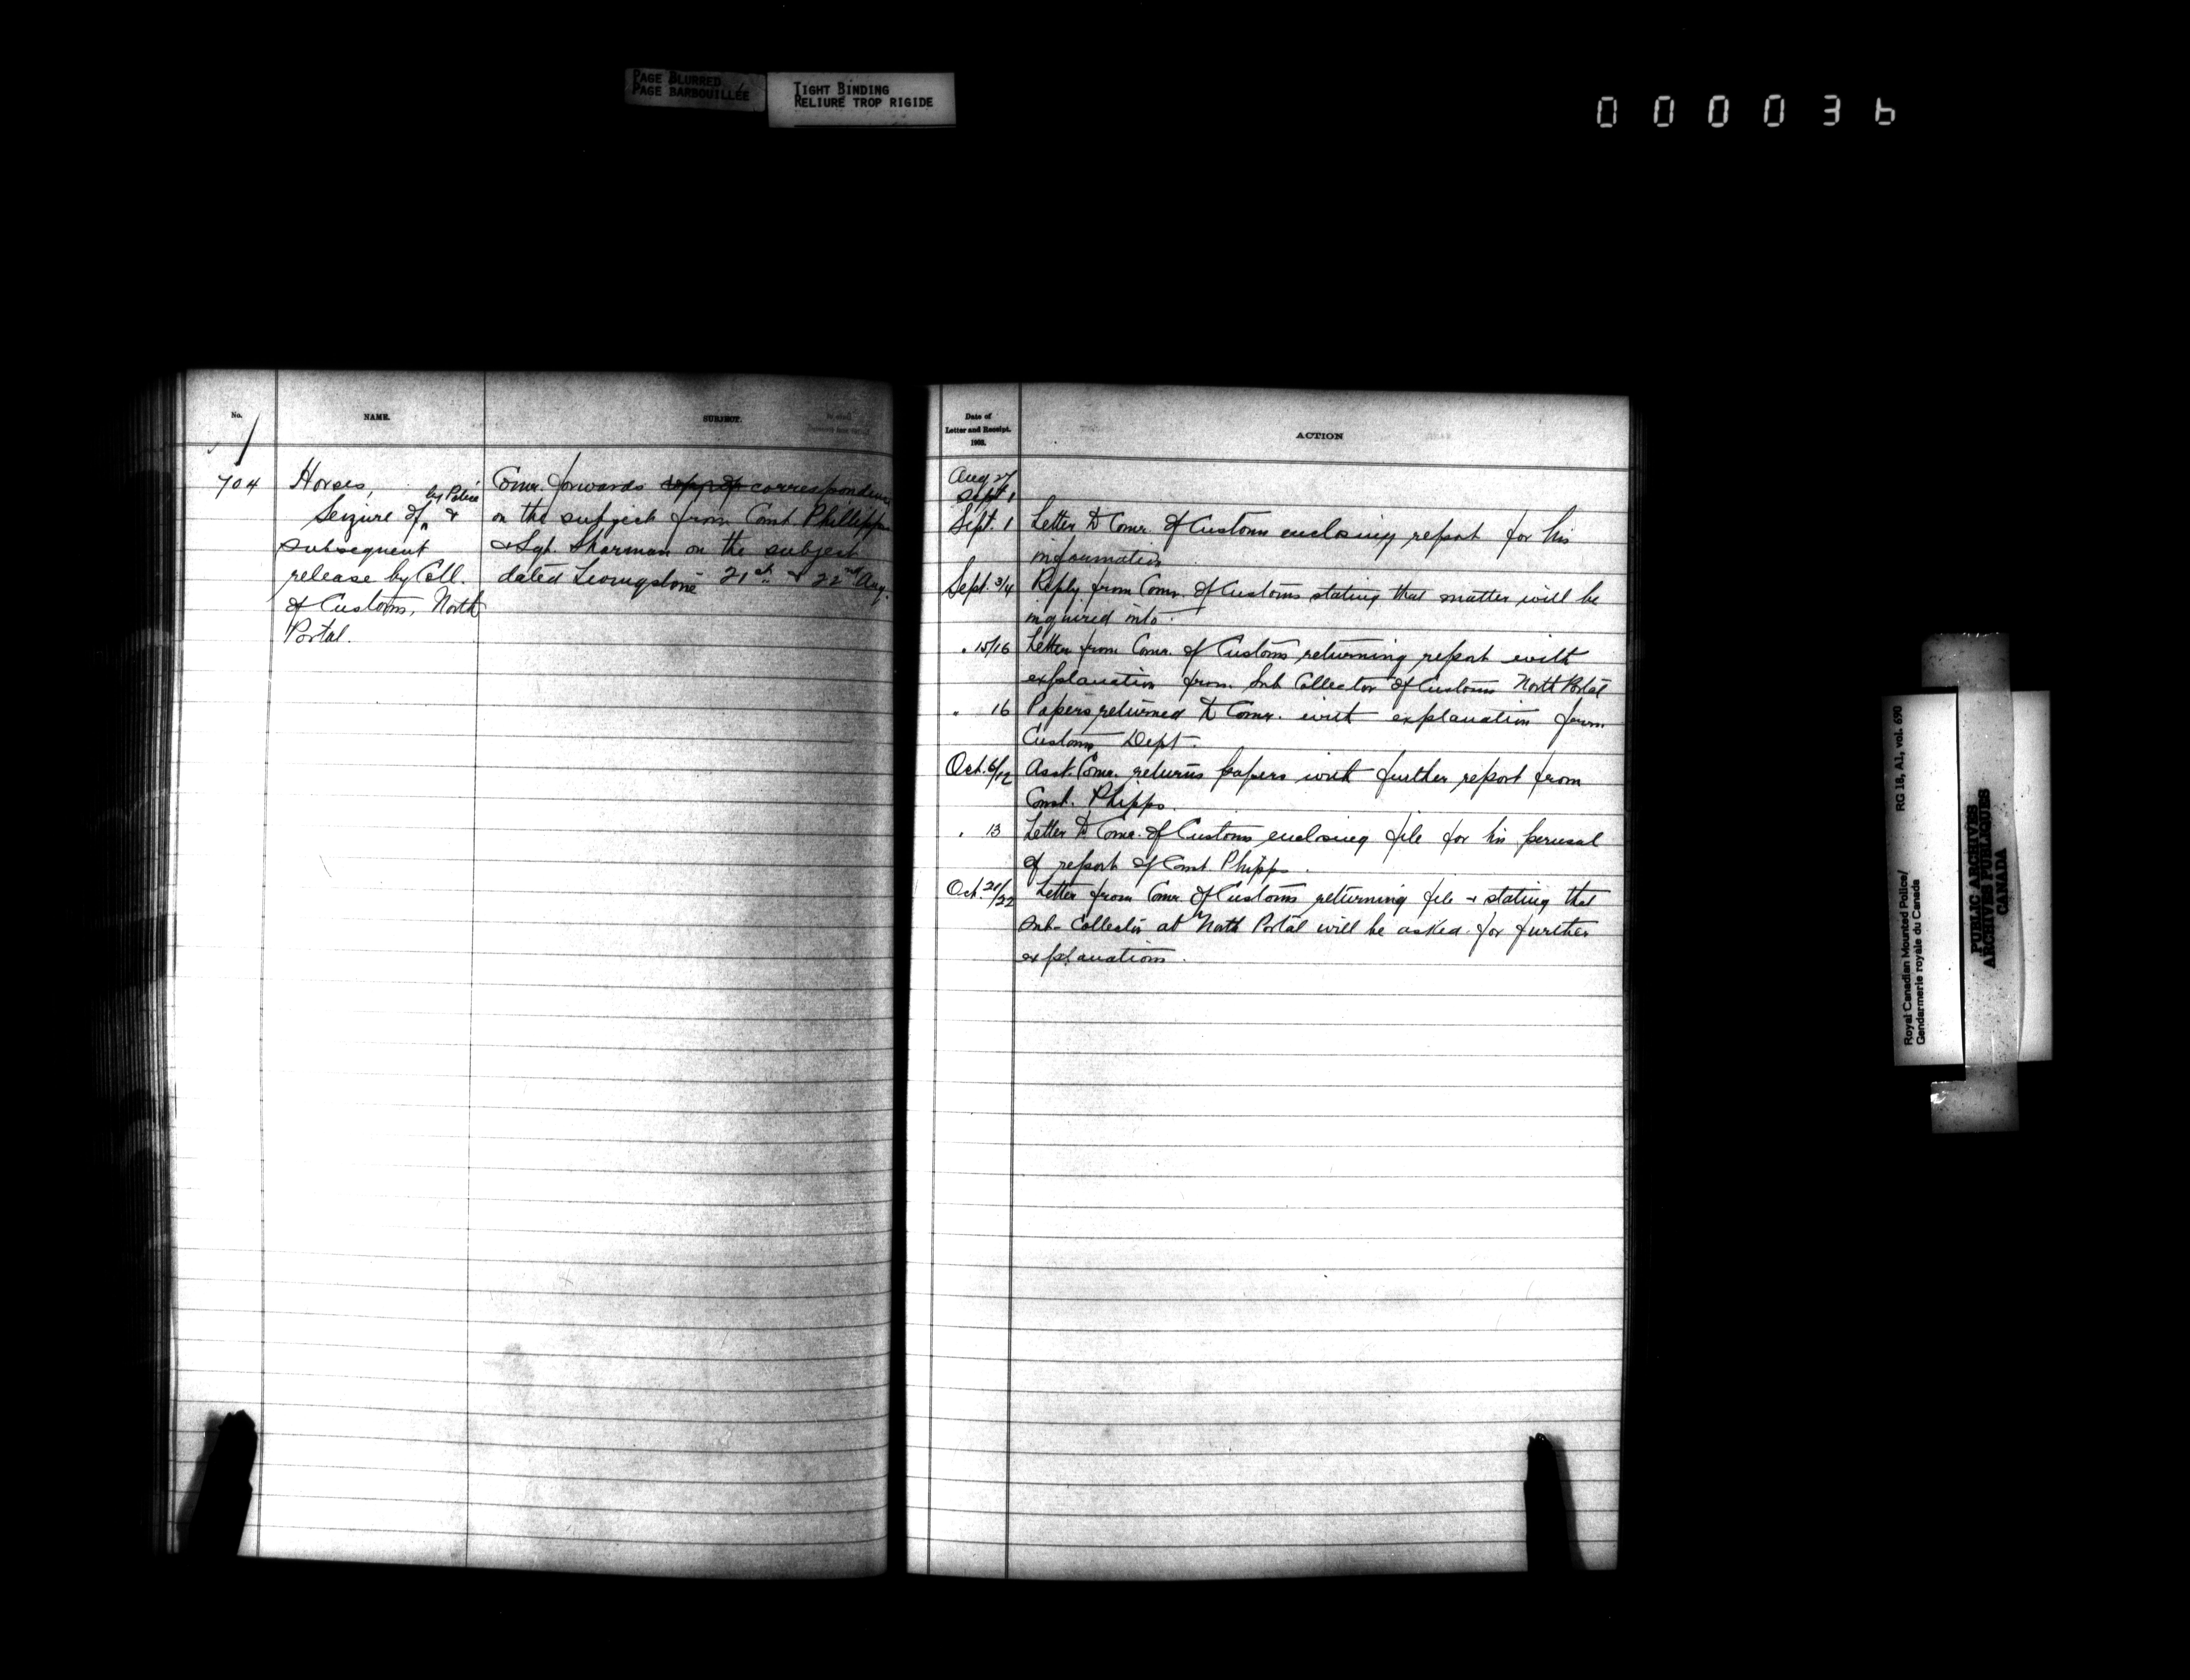 PAGE BLURRED
PAGE BARBOUILLÉE
TIGHT BINDING
RELIURE TROP RIGIDE
000036
No.
NAME.
SUBJECT.
704
Horses,
Seizure of by Police &
subsequent
release by Coll.
of Customs, North
Portal.
Comr. forwards correspondence
on the subject from Const Phillipps
& Sgt. Sharman on the subject
dated 21st & 22nd Aug.
Date of
Letter and Receipt.
1903.
ACTION
Aug 27
Sept 1
Sept. 1 Letter to Comr. of Customs enclosing report for his
information
Sept. 3/4 Reply from Comr. of Customs stating that matter will be
inquired into.
" 15/16 Letter from Comr. of Customs returning report with
explanation from Sub Collector of Customs North Portal
" 16 Papers returned to Comr. with explanation from
Customs Dept.
Oct. 6/12 Asst. Comr. returns papers with further report from
Const. Phipps.
" 13 Letter to Comr. of Customs enclosing file for his perusal
of report of Const. Phipps.
Oct. 21/22 Letter from Comr. of Customs returning file & stating that
Sub-Collector at North Portal will be asked for further
explanations.
Royal Canadian Mounted Police/
Gendarmerie royale du Canada
RG 18, A1, vol. 690
PUBLIC ARCHIVES
ARCHIVES PUBLIQUES
CANADA